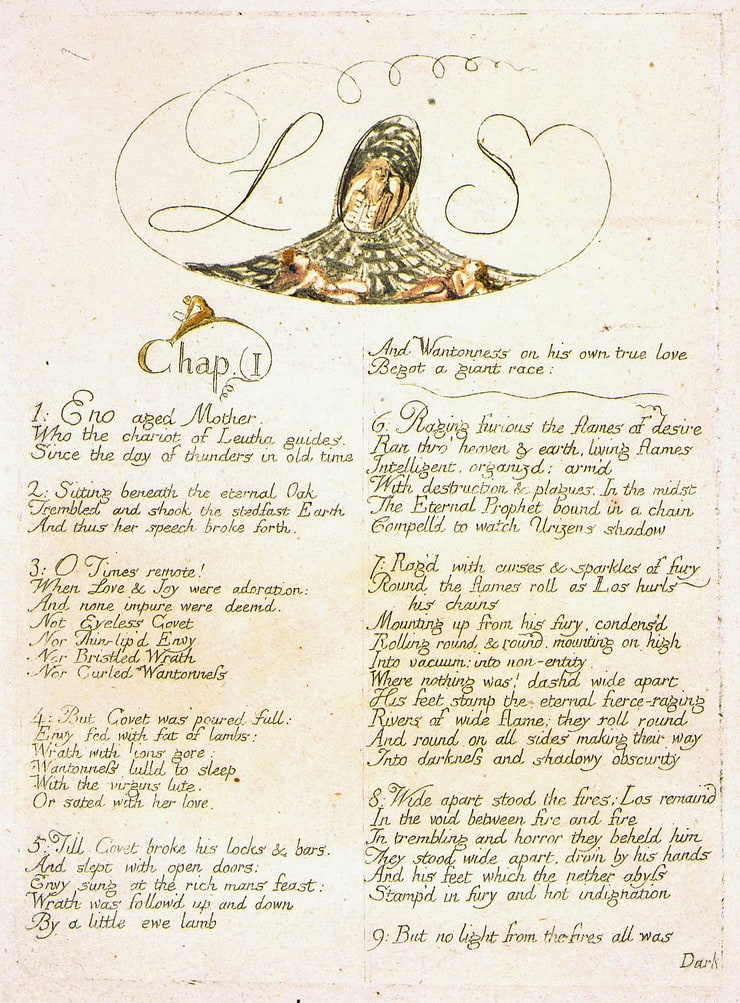 LOS
Chap. I
1: Eno aged Mother,
Who the chariot of Leutha guides,
Since the day of thunders in old time
2: Sitting beneath the eternal Oak
Trembled and shook the stedfast Earth
And thus her speech broke forth.
3: O Times remote!
When Love & Joy were adoration:
And none impure were deem'd.
Not Eyeless Covet
Nor Thin-lip'd Envy
Nor Bristled Wrath
Nor Curled Wantonneſs
4: But Covet was poured full:
Envy fed with fat of lambs:
Wrath with lions gore:
Wantonneſs lulld to sleep
With the virgins lute,
Or sated with her love.
5: Till Covet broke his locks & bars,
And slept with open doors:
Envy sung at the rich mans feast:
Wrath was follow'd up and down
By a little ewe lamb
And Wantonneſs on his own true love
Begot a giant race:
6: Raging furious the flames of desire
Ran thro' heaven & earth, living flames
Intelligent, organiz'd: arm'd
With destruction & plagues. In the midst
The Eternal Prophet bound in a chain
Compell'd to watch Urizens shadow
7: Rag'd with curses & sparkles of fury
Round the flames roll as Los hurls
his chains
Mounting up from his fury, condens'd
Rolling round & round, mounting on high
Into vacuum: into non-entity.
Where nothing was! dash'd wide apart
His feet stamp the eternal fierce-raging
Rivers of wide flame; they roll round
And round on all sides making their way
Into darkneſs and shadowy obscurity
8: Wide apart stood the fires: Los remain'd
In the void between fire and fire
In trembling and horror they beheld him
They stood wide apart, driv'n by his hands
And his feet which the nether abyſs
Stamp'd in fury and hot indignation
9: But no light from the fires all was
Dark